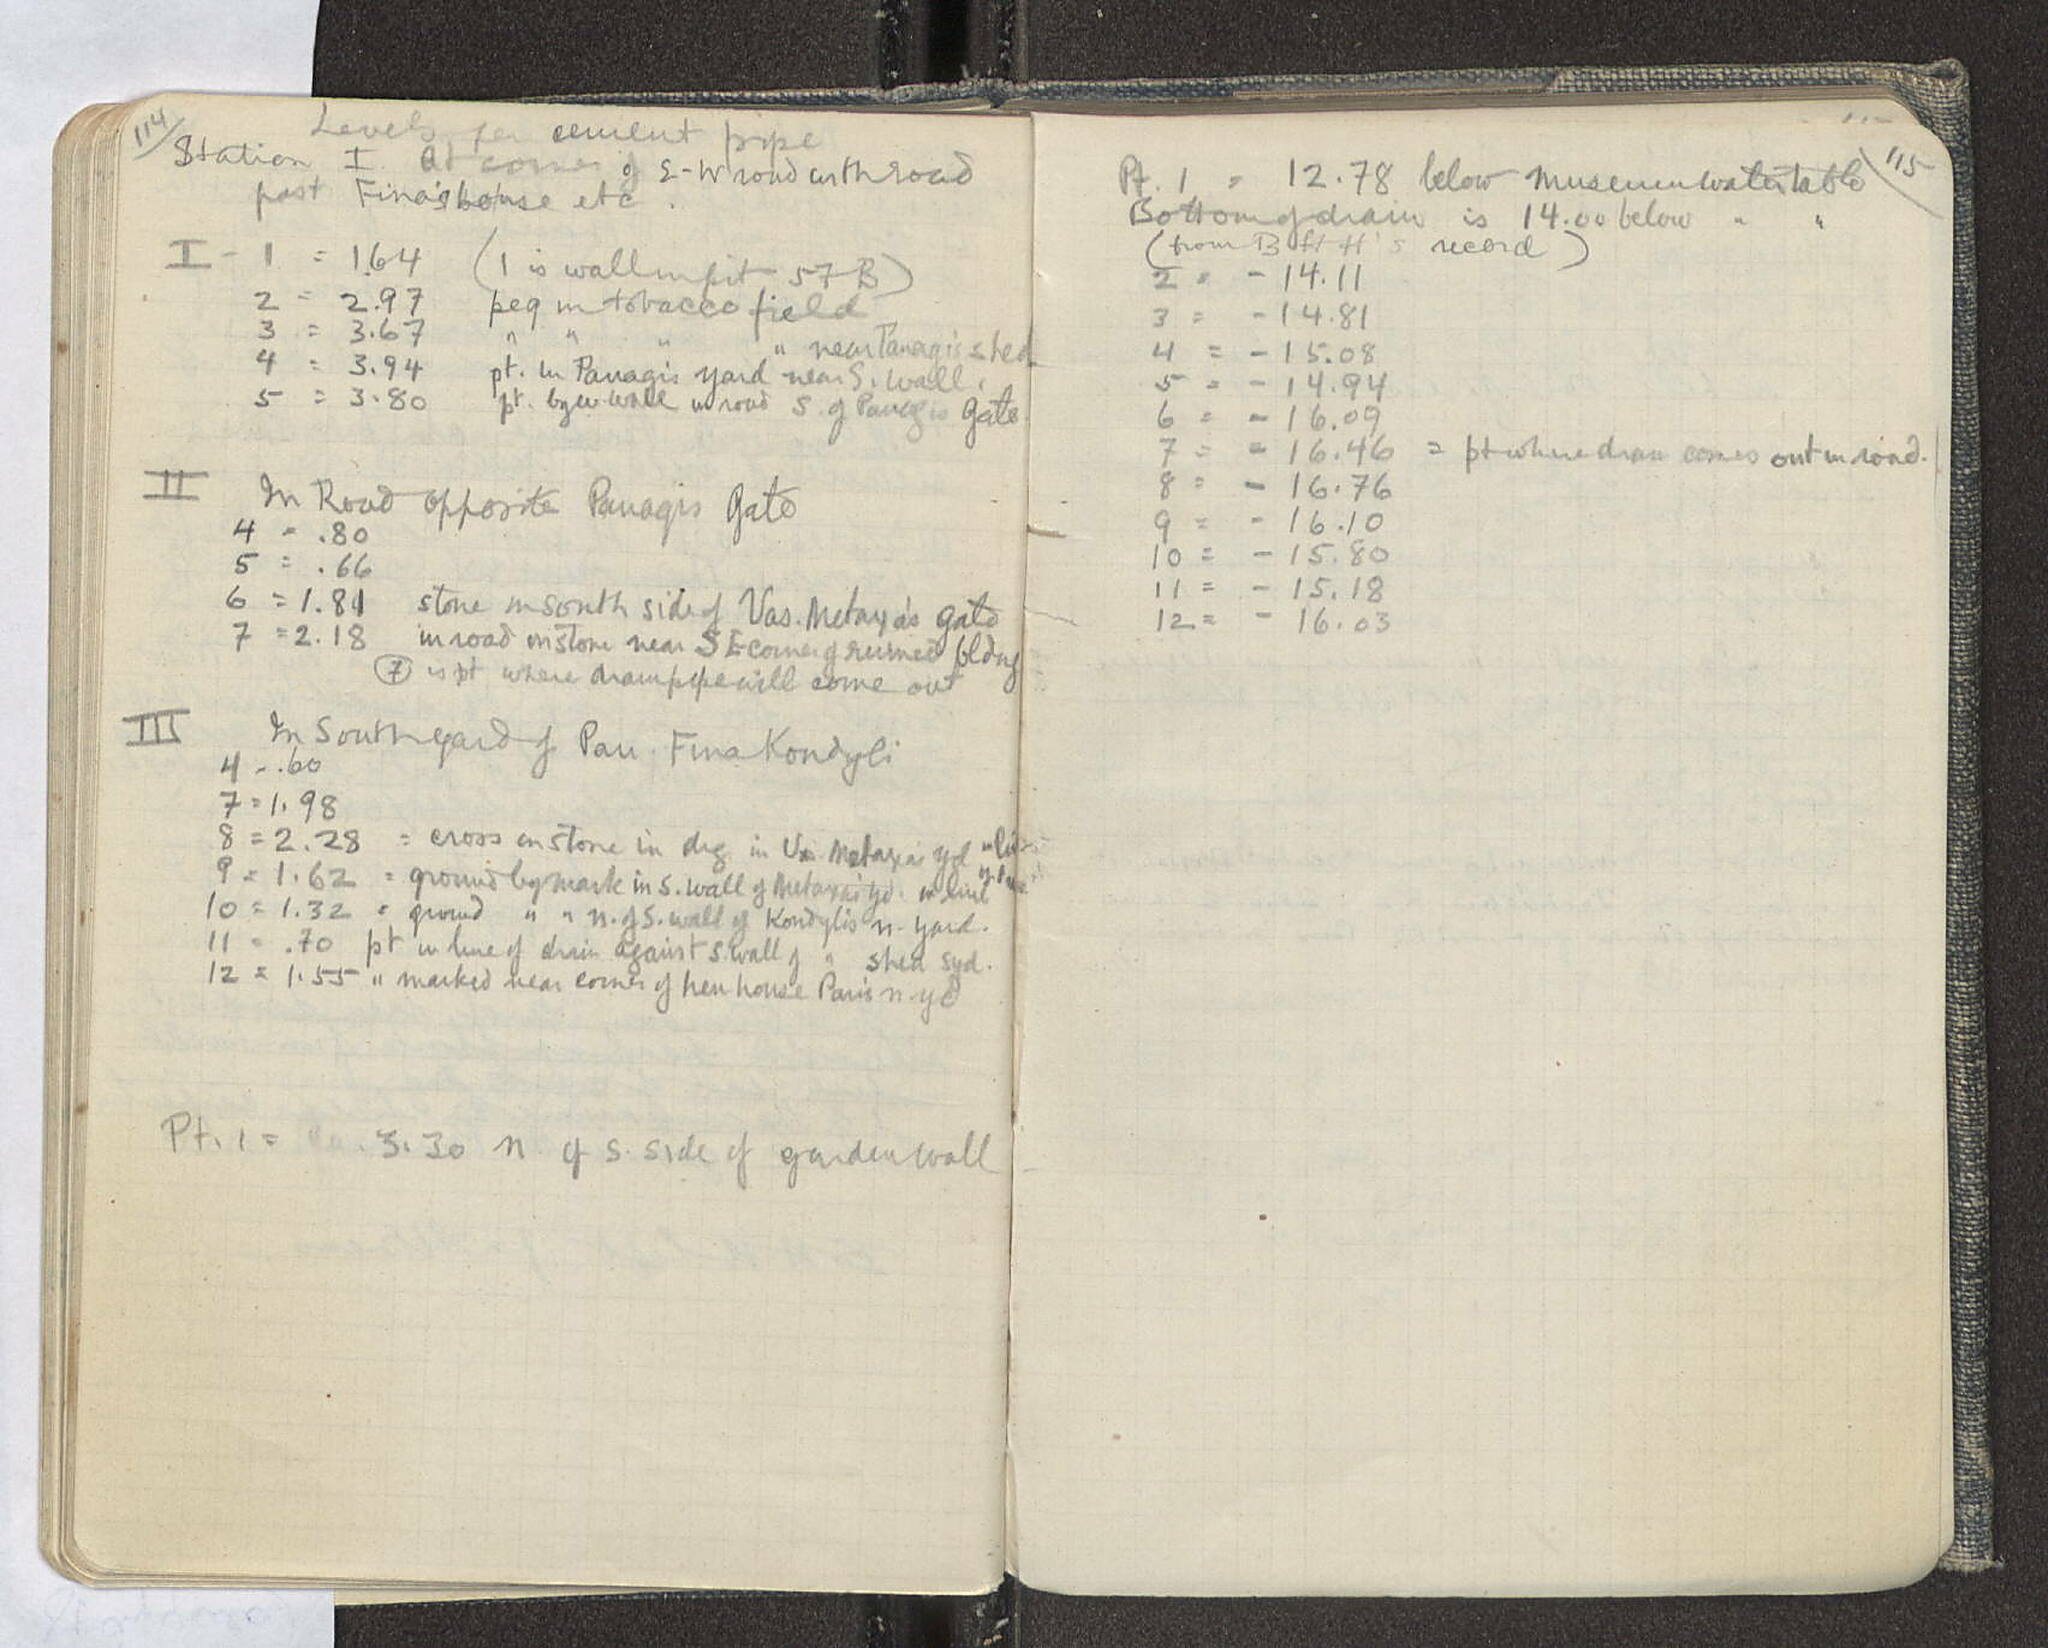 114
Levels for cement pipe
Station I. At corner of E-W road with road
past Fina's house etc.
I - 1 = 1.64 (1 is wall in pit 57 B)
2 = 2.97 peg in tobacco field
3 = 3.67 " " " " near Panagis shed
4 = 3.94 pt. in Panagis yard near S. wall.
5 = 3.80 pt. by w. wall in road S. of Panagis Gate
II In Road opposite Panagis Gate
4 = .80
5 = .66
6 = 1.81 stone in south side of Vas. Metaxas gate
7 = 2.18 in road on stone near SE corner of ruined bldng
7 is pt where drain pipe will come out
III In South yard of Pan. Fina Kondyli
4 - .60
7 = 1.98
8 = 2.28 = cross on stone in dig in Vas. Metaxas yd in line
9 = 1.62 = ground by mark in S. wall of Metaxas yd. in line
10 = 1.32 = ground " " n. of S. wall of Kondylis n. yard.
11 = .70 pt in line of drain against S. wall of " shed syd.
12 = 1.55 " marked near corner of hen house Paris n. yd
Pt. 1 = 3.30 n. of S. side of garden wall
115
Pt. 1 = 12.78 below museum water table
Bottom of drain is 14.00 below " "
(from B H's record)
2 = - 14.11
3 = - 14.81
4 = - 15.08
5 = - 14.94
6 = - 16.09
7 = - 16.46 = pt where drain comes out in road.
8 = - 16.76
9 = - 16.10
10 = - 15.80
11 = - 15.18
12 = - 16.03